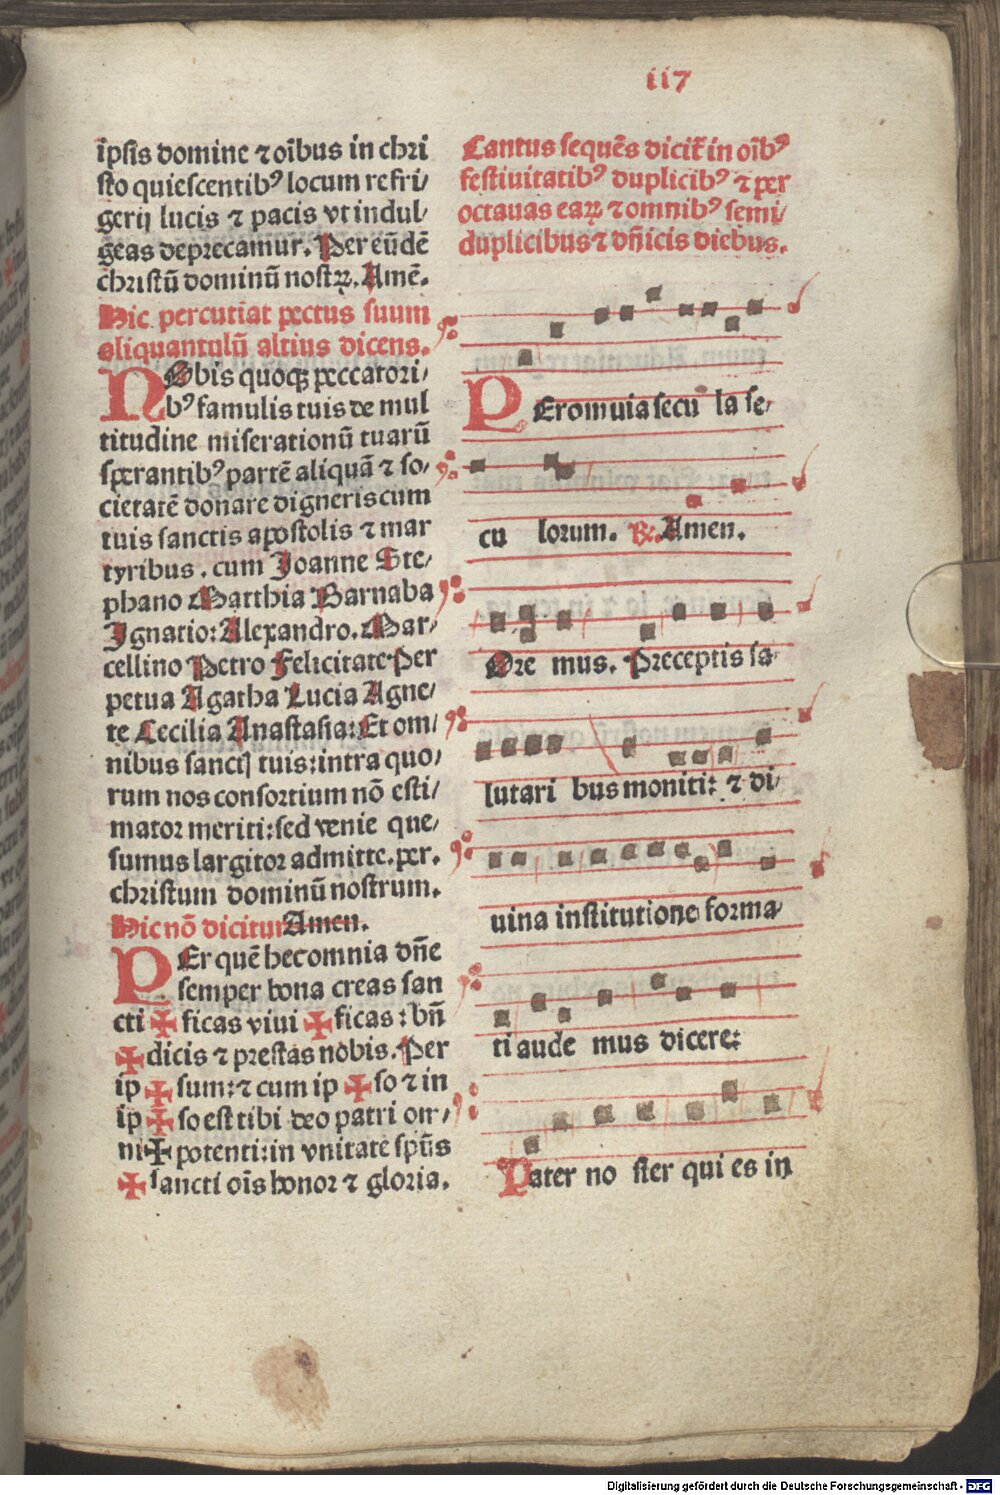 117
ip̄sis domine ⁊ oībus in chri
sto quiescentibꝰ locum refri/
gerij lucis ⁊ pacis vt indul/
geas deprecamur. Per eūdē
christū dominū nostrꝝ. Amē.
Hic percutiat pectus suum
aliquantulū altius dicens.
NObis quoqꝫ peccatori/
bꝰ famulis tuis de mul
titudine miserationū tuarū
sperantibꝰ partē aliquā ⁊ so/
cietatē donare digneris cum
tuis sanctis apostolis ⁊ mar
tyribus. cum Joanne Ste/
phano Matthia Barnaba
Ignatio: Alexandro. Mar/
cellino Petro Felicitate Per
petua Agatha Lucia Agne/
te Cecilia Anastasia: Et om/
nibus sanctꝭ tuis: intra quo/
rum nos consortium nō esti/
mator meriti: sed venie que/
sumus largitor admitte. per.
christum dominū nostrum.
Hic nō dicitur Amen.
PEr quē hec omnia dn̄e
semper bona creas san
cti ✠ ficas viui ✠ ficas: bn̄
✠ dicis ⁊ prestas nobis. Per
ip ✠ sum: ⁊ cum ip ✠ so ⁊ in
ip ✠ so est tibi deo patri om/
ni ✠ potenti: in vnitate spūs
✠ sancti oīs honor ⁊ gloria.
Cantus sequēs dicit̄ in oībꝰ
festiuitatibꝰ duplicibꝰ ⁊ per
octauas eaꝝ ⁊ omnibꝰ semi/
duplicibus ⁊ dn̄icis diebus.
PEr omuia secu la se/
cu lorum. ℟. Amen.
Ore mus. Preceptis sa/
lutari bus moniti: ⁊ di/
uina institutione forma/
ti aude mus dicere:
Pater no ster qui es in
Digitalisierung gefördert durch die Deutsche Forschungsgemeinschaft - DFG